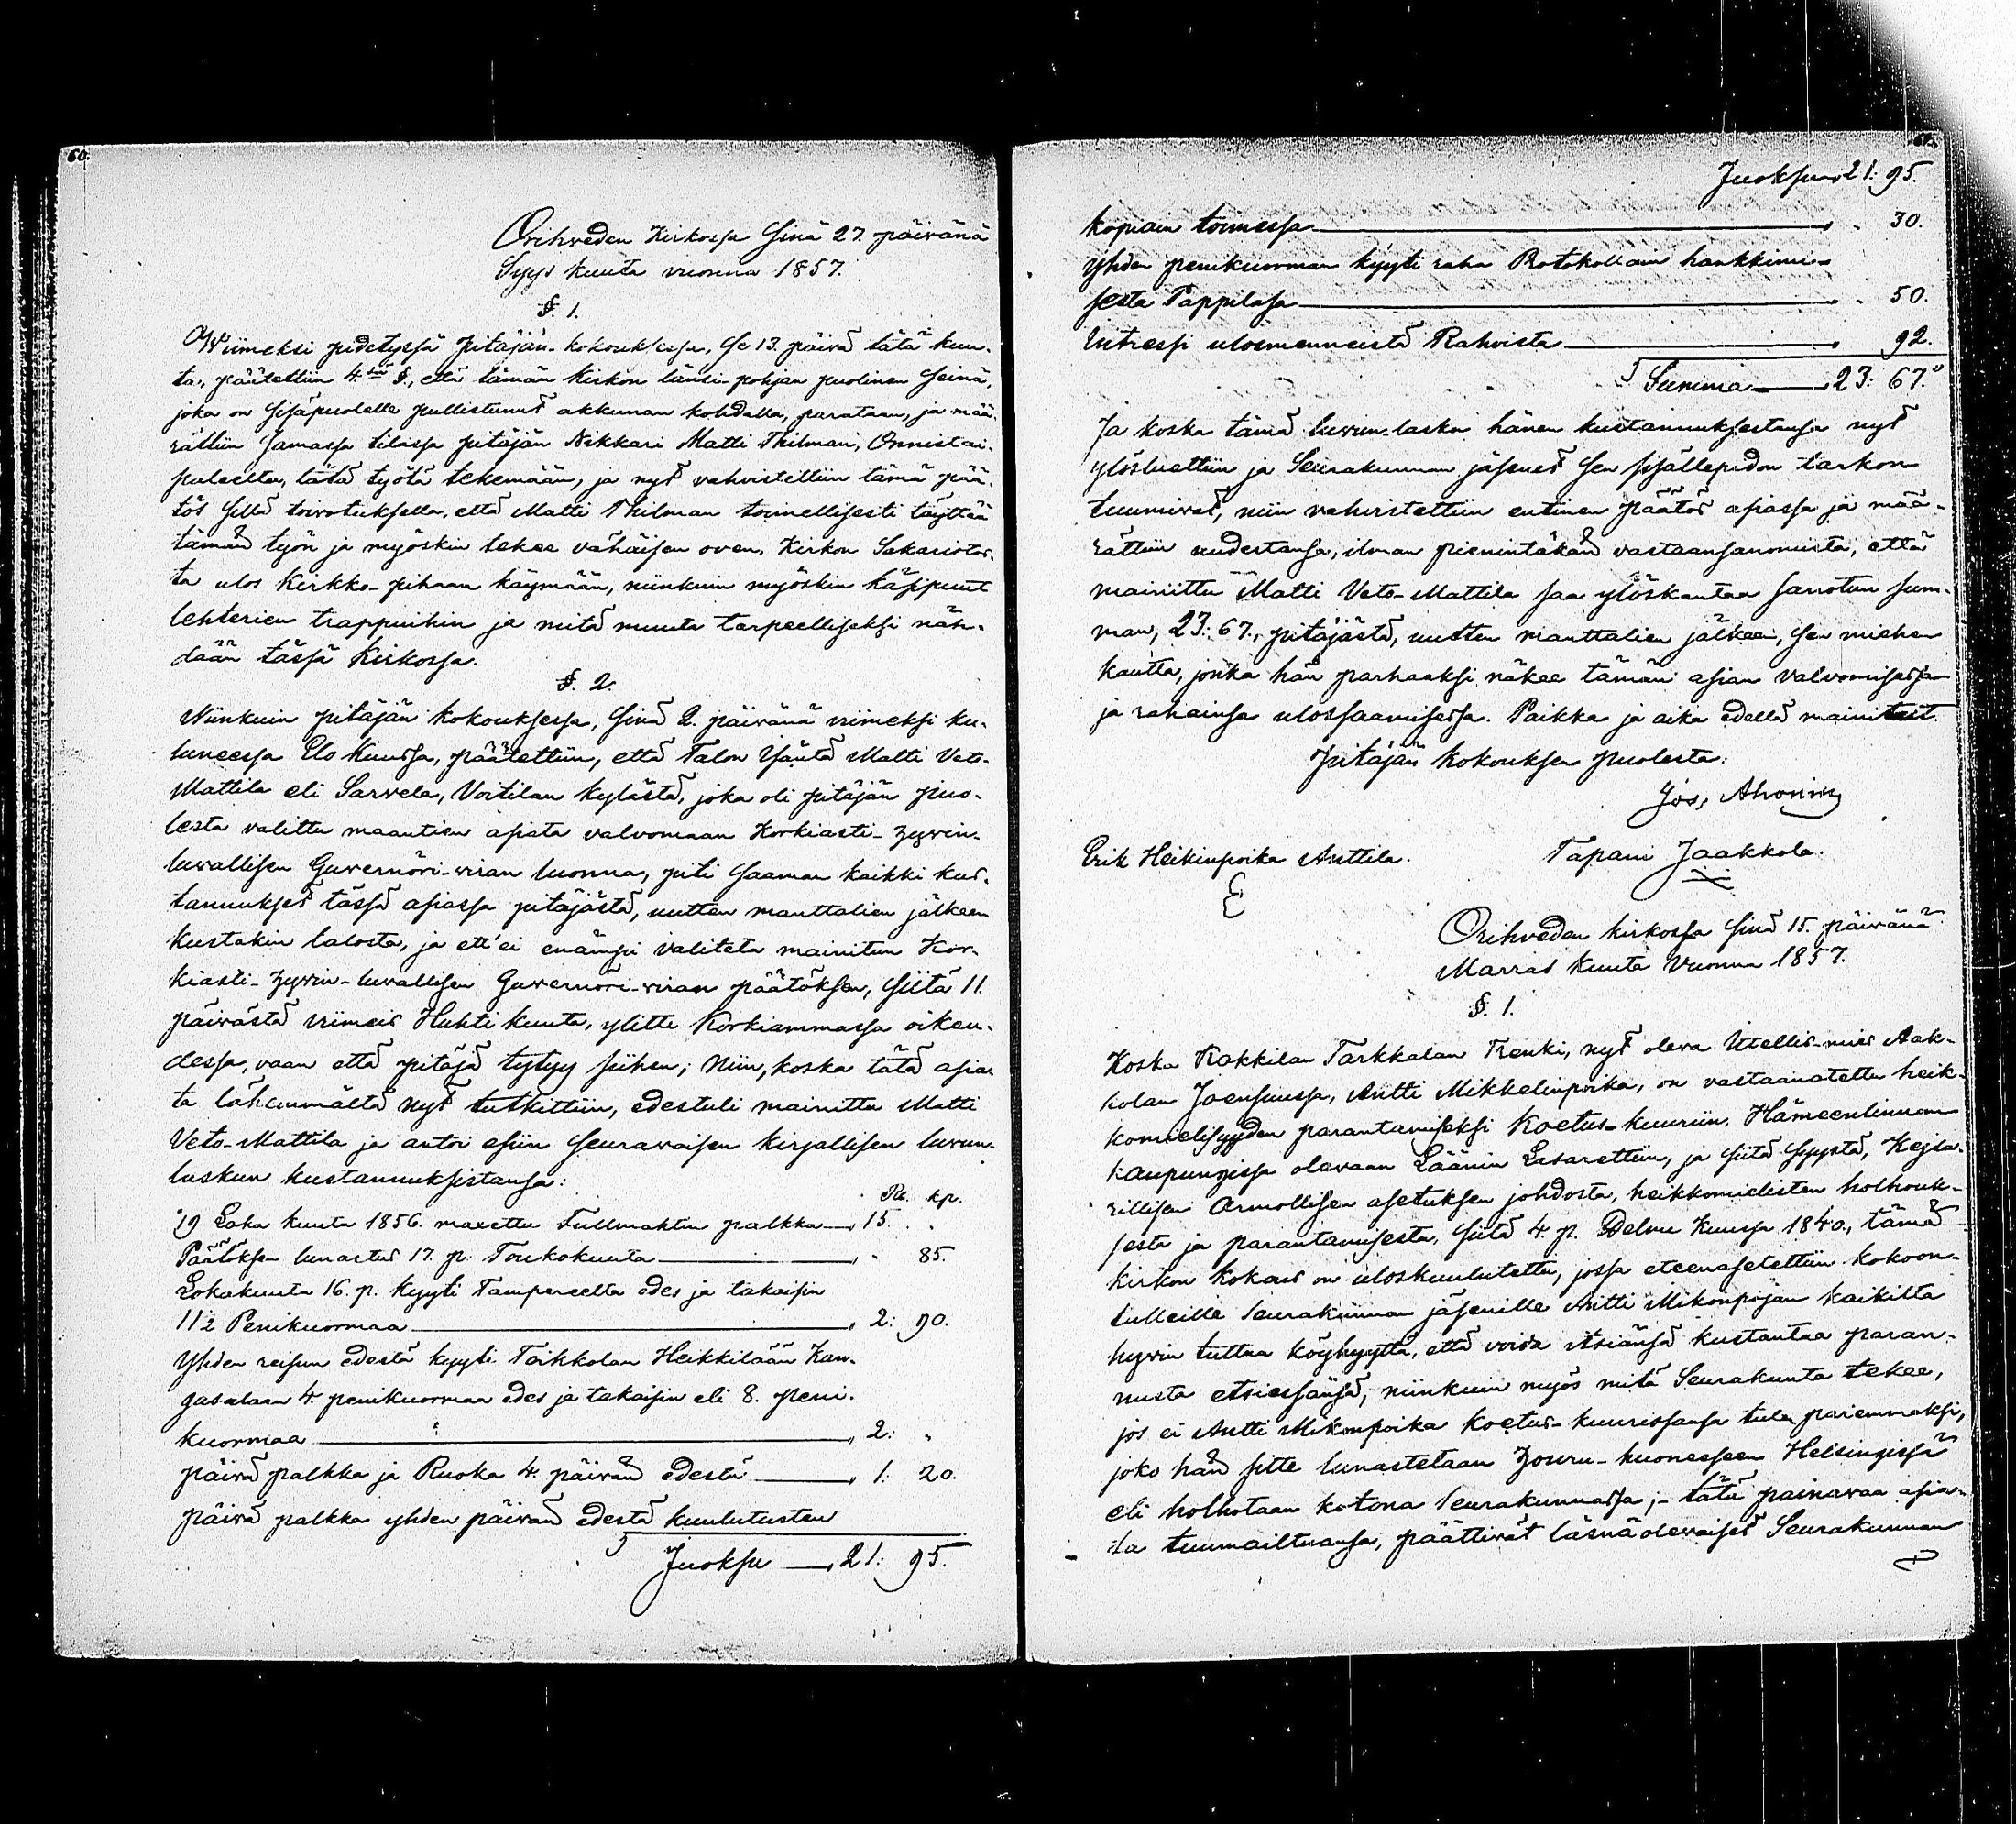 60.
Orihveden Kirkossa Sinä 27. päivänä
Syys kuuta vuonna 1857.
§. 1.
Wiimeksi pidetyssä pitäjän-kokouksessa, Se 13. päivä tätä kuu-
ta, päätettiin 4. §., että tämän kirkon länsi-pohjan puolinen seinä,
joka on sisäpuolelle pullistunut akkunan kohdalla, parataan, ja mää-
rättiin samassa tilassa pitäjän Nikkari Matti Thilman, Onnistai-
paleelta, tätä työtä tekemään, ja nyt vahvistettiin tämä pää-
tös sillä toivotuksella, että Matti Thilman toimellisesti täyttää
tämän työn ja myöskin tekee vähäisen oven, Kirkon Sakaristos-
ta ulos Kirkko-pihaan käymään, niinkuin myöskin käsipuut
lehterien trappuihin ja mitä muuta tarpeelliseksi näh-
dään tässä Kirkossa.
§. 2.
Niinkuin pitäjän kokouksessa, sinä 2. päivänä viimeksi ku-
luneessa Elo Kuussa, päätettiin, että Talon Isäntä Matti Veto-
Mattila eli Sarvela, Voitilan kylästä, joka oli pitäjän puo-
lesta valittu maantien asiata valvomaan Korkiasti-zyvin-
luvallisen Guvernöri-viran luonna, piti saaman kaikki kus-
tannukset tässä asiassa pitäjästä, uutten manttalien jälkeen
kustakin talosta, ja ett'ei enämpi valiteta mainitun Kor-
kiasti-zyvin-luvallisen Guvernöri-viran päätöksen, siitä 11.
päivästä viimeis Huhti kuuta, ylitte Korkiammassa oikeu-
dessa, vaan että pitäjä tytyy siihen; Niin, koska tätä asia-
ta lähemmältä nyt tutkittiin, edestuli mainittu Matti
Veto-Mattila ja antoi esiin seuraavaisen kirjallisen luvun-
laskun kustannuksistansa:
Rb. kp.
19 Loka kuuta 1856. maxettu Fullmaktin palkka 15. „
Päätöksen lunastus 17. p. Toukokuuta „ 85.
Lokakuuta 16. p. kyyti Tampereelta edes ja takaisin
11½ Penikuormaa 2: 90.
Yhden reisun edestä kyyti Toikkolan Heikkilään Kan-
gasalaan 4. penikuormaa edes ja takaisin eli 8. peni-
kuormaa 2: „
päivä palkka ja Ruoka 4. päivän edestä 1: 20.
päivä palkka yhden päivän edestä kuulutusten
Juoksu 21: 95.
61.
Juoksu 21: 95.
kopiain toimessa 30.
yhden penikuorman kyyti raha Protokollain hankkimi-
sesta Pappilasa 50.
Intressi ulosmenneistä Rahoista 92.
Summa 23: 67.
Ja koska tämä luvun-lasku hänen kustannuksestansa nyt
ylösluettiin ja Seurakunnan jäsenet sen sisällepidon tarkon
tuumivat, niin vahvistettiin entinen päätös asiassa ja mää-
rättiin uudestansa, ilman pienintäkän vastaansanomista, että
mainittu Matti Veto-Mattila saa ylöskantaa sanotun sum-
man, 23: 67., pitäjästä, uutten manttalien jälkeen, sen miehen
kautta, jonka hän parhaaksi näkee tämän asian valvomisessa
ja rahainsa ulossaamisessa. Paikka ja aika edellä mainitut.
Pitäjän kokouksen puolesta:
Jos. Ahoning
Erik Heikinpoika Anttila. Tapani Jaakkola.
Orihveden kirkossa sinä 15. päivänä
Marras kuuta Vuonna 1857.
§. 1.
Koska Rakkilan Tarkkalan Trenki, nyt oleva Itsellis-mies Aak-
kolan Joensuussa, Antti Mikkelinpoika, on vastaanotettu heik-
komielisyyden parantamiseksi Koetus-kuuriin, Hämeenlinnan
kaupungissa olevaan Läänin Lasarettiin, ja siitä syystä, Kejsa-
rillisen Armollisen asetuksen johdosta, heikkomielisten holhouk-
sesta ja parantamisesta, siitä 4. p. Kuussa 1840., tämä
kirkon kokous on uloskuulutettu, jossa eteenasetettiin kokoon-
tulleille Seurakunnan jäsenille Antti Mikonpojan kaikilta
hyvin tuttua köyhyyttä, että voida itsiänsä kustantaa paran-
nusta etsiessänsä, niinkuin myös mitä Seurakunta tekee,
jos ei Antti Mikonpoika koetus-kuurissansa tule paremmaksi,
joko hän sitte lunastetaan Houru-huoneeseen Helsingissä
eli holhotaan kotona Seurakunnassa;- tätä painavaa asia-
ta tuumailtuansa, päättivät läsnäolevaiset Seurakunnan